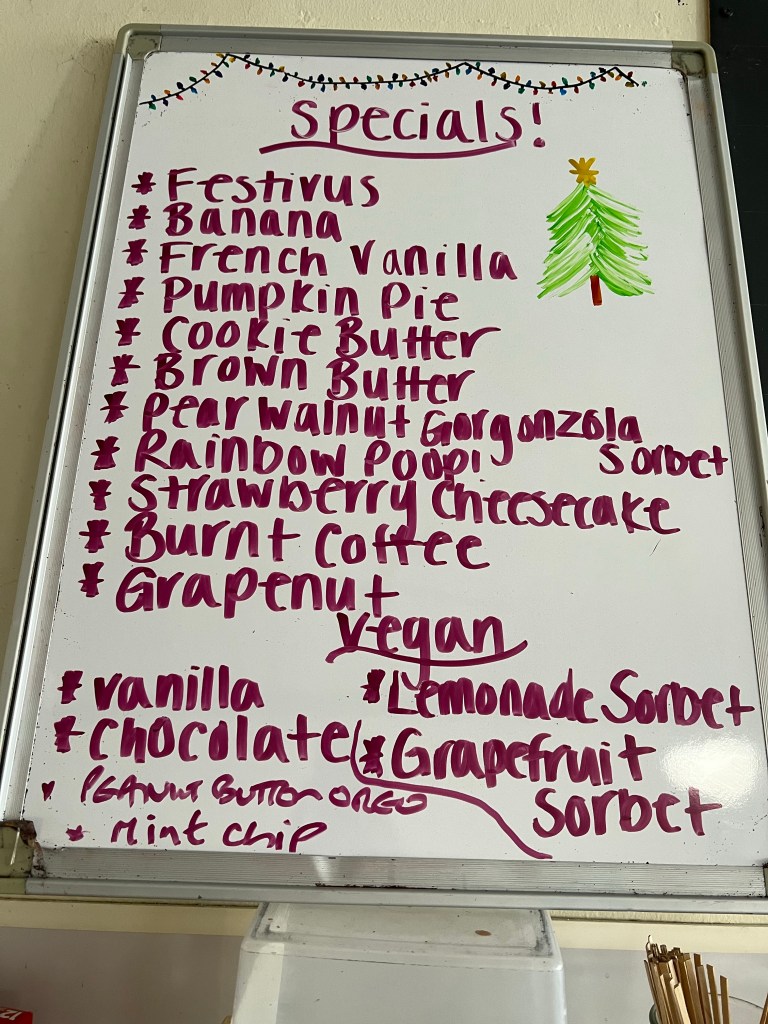 Specials!
* Festivus
* Banana
* French Vanilla
* Pumpkin Pie
* Cookie Butter
* Brown Butter
* Pear Walnut Gorgonzola
Sorbet
* Rainbow Poopi
* Strawberry Cheesecake
* Burnt Coffee
* Grapenut
Vegan
* Vanilla
* Chocolate
♥ PEANUT BUTTER OREO
* Mint Chip
* Lemonade Sorbet
* Grapefruit
Sorbet
12